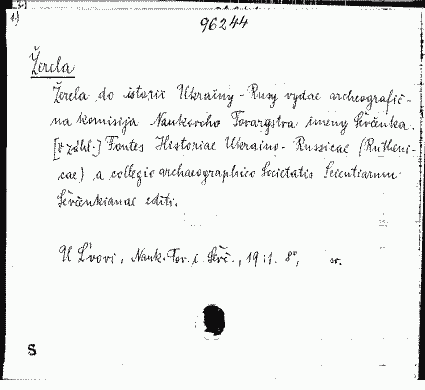 1.)
96244
Žerela
Žerela do istorii Ukraïny-Rusy vydae archeografič-
na komisija Naukovoho Tovarystva imeny Ševčenka.
[v záhl.] Fontes Historiae Ukraino-Russicae (Rutheni-
cae) a collegio archaeographico Societatis Scientiarum
Ševčenkianae editi.
U L'vovi, Nauk. Tov. i. Ševč., 8°,
S